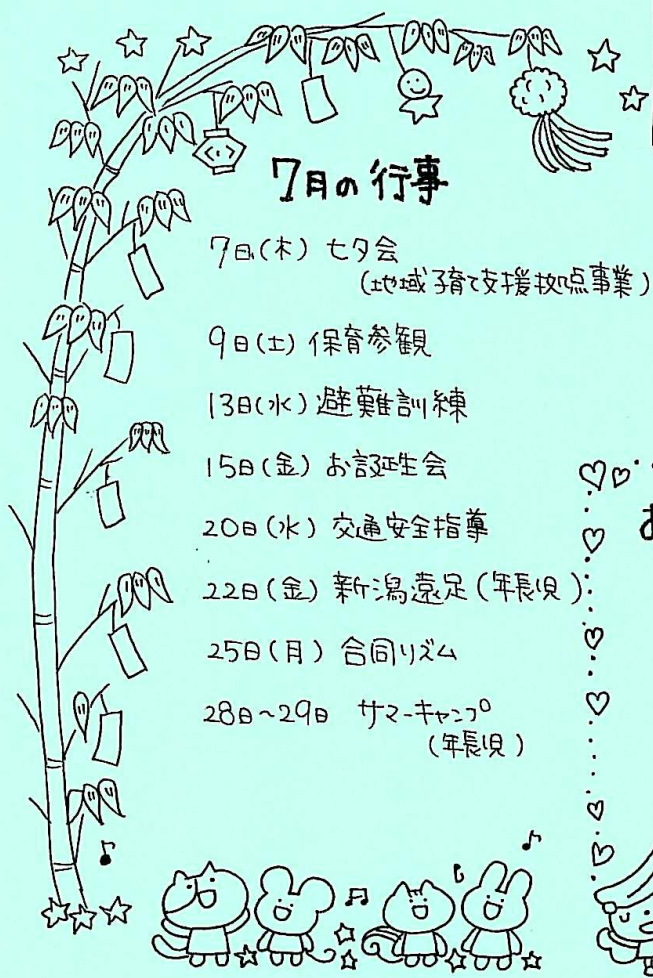 7月の行事
7日(木) 七夕会
(地域子育て支援拠点事業)
9日(土) 保育参観
13日(水) 避難訓練
15日(金) お誕生会
20日(水) 交通安全指導
22日(金) 新潟遠足(年長児)
25日(月) 合同リズム
28日~29日 サマーキャンプ
(年長児)